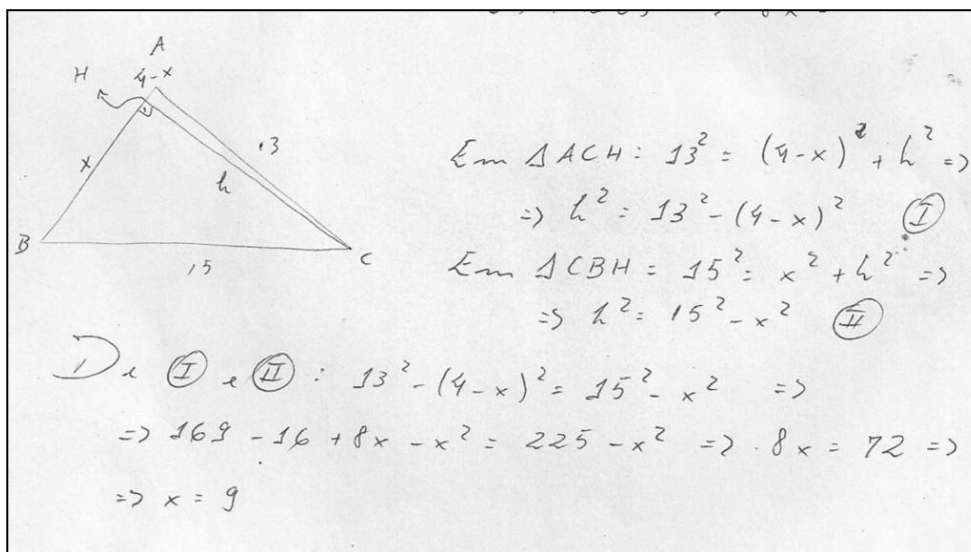 A
H
4-x
x
13
h
B
15
C
Em ΔACH: 13² = (4-x)² + h² =>
=> h² = 13² - (4-x)² Ⓘ
Em ΔCBH = 15² = x² + h² =>
=> h² = 15² - x² Ⓘ Ⓘ
De Ⓘ e ⒾⒾ : 13² - (4-x)² = 15² - x² =>
=> 169 - 16 + 8x - x² = 225 - x² => 8x = 72 =>
=> x = 9